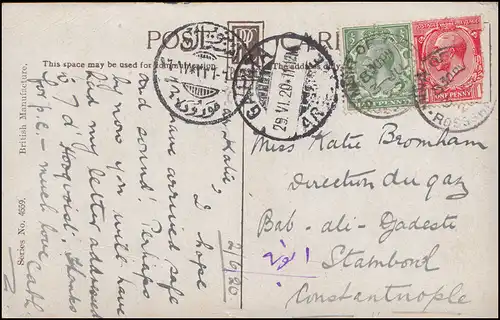 POST CARD
This space may be used for communication.
The address only
British Manufacture.
Series No. 4559.
2/6/20.
Katie, I hope
you have arrived safe
and sound! Perhaps
by now you will have
had my letter addressed
to J d' Horqvist. Thanks
for p.c. - much love, Cath
GALATA
29.VI.20
ONE PENNY
ROSS
Miss Katie Bromham
Direction du gaz
Bab-ali-Djadesti
Stamboul
Constantinople